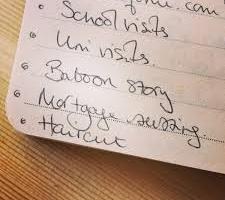 .com
School visits
Uni visits.
Baboon story
Mortgage sussing.
Haircut